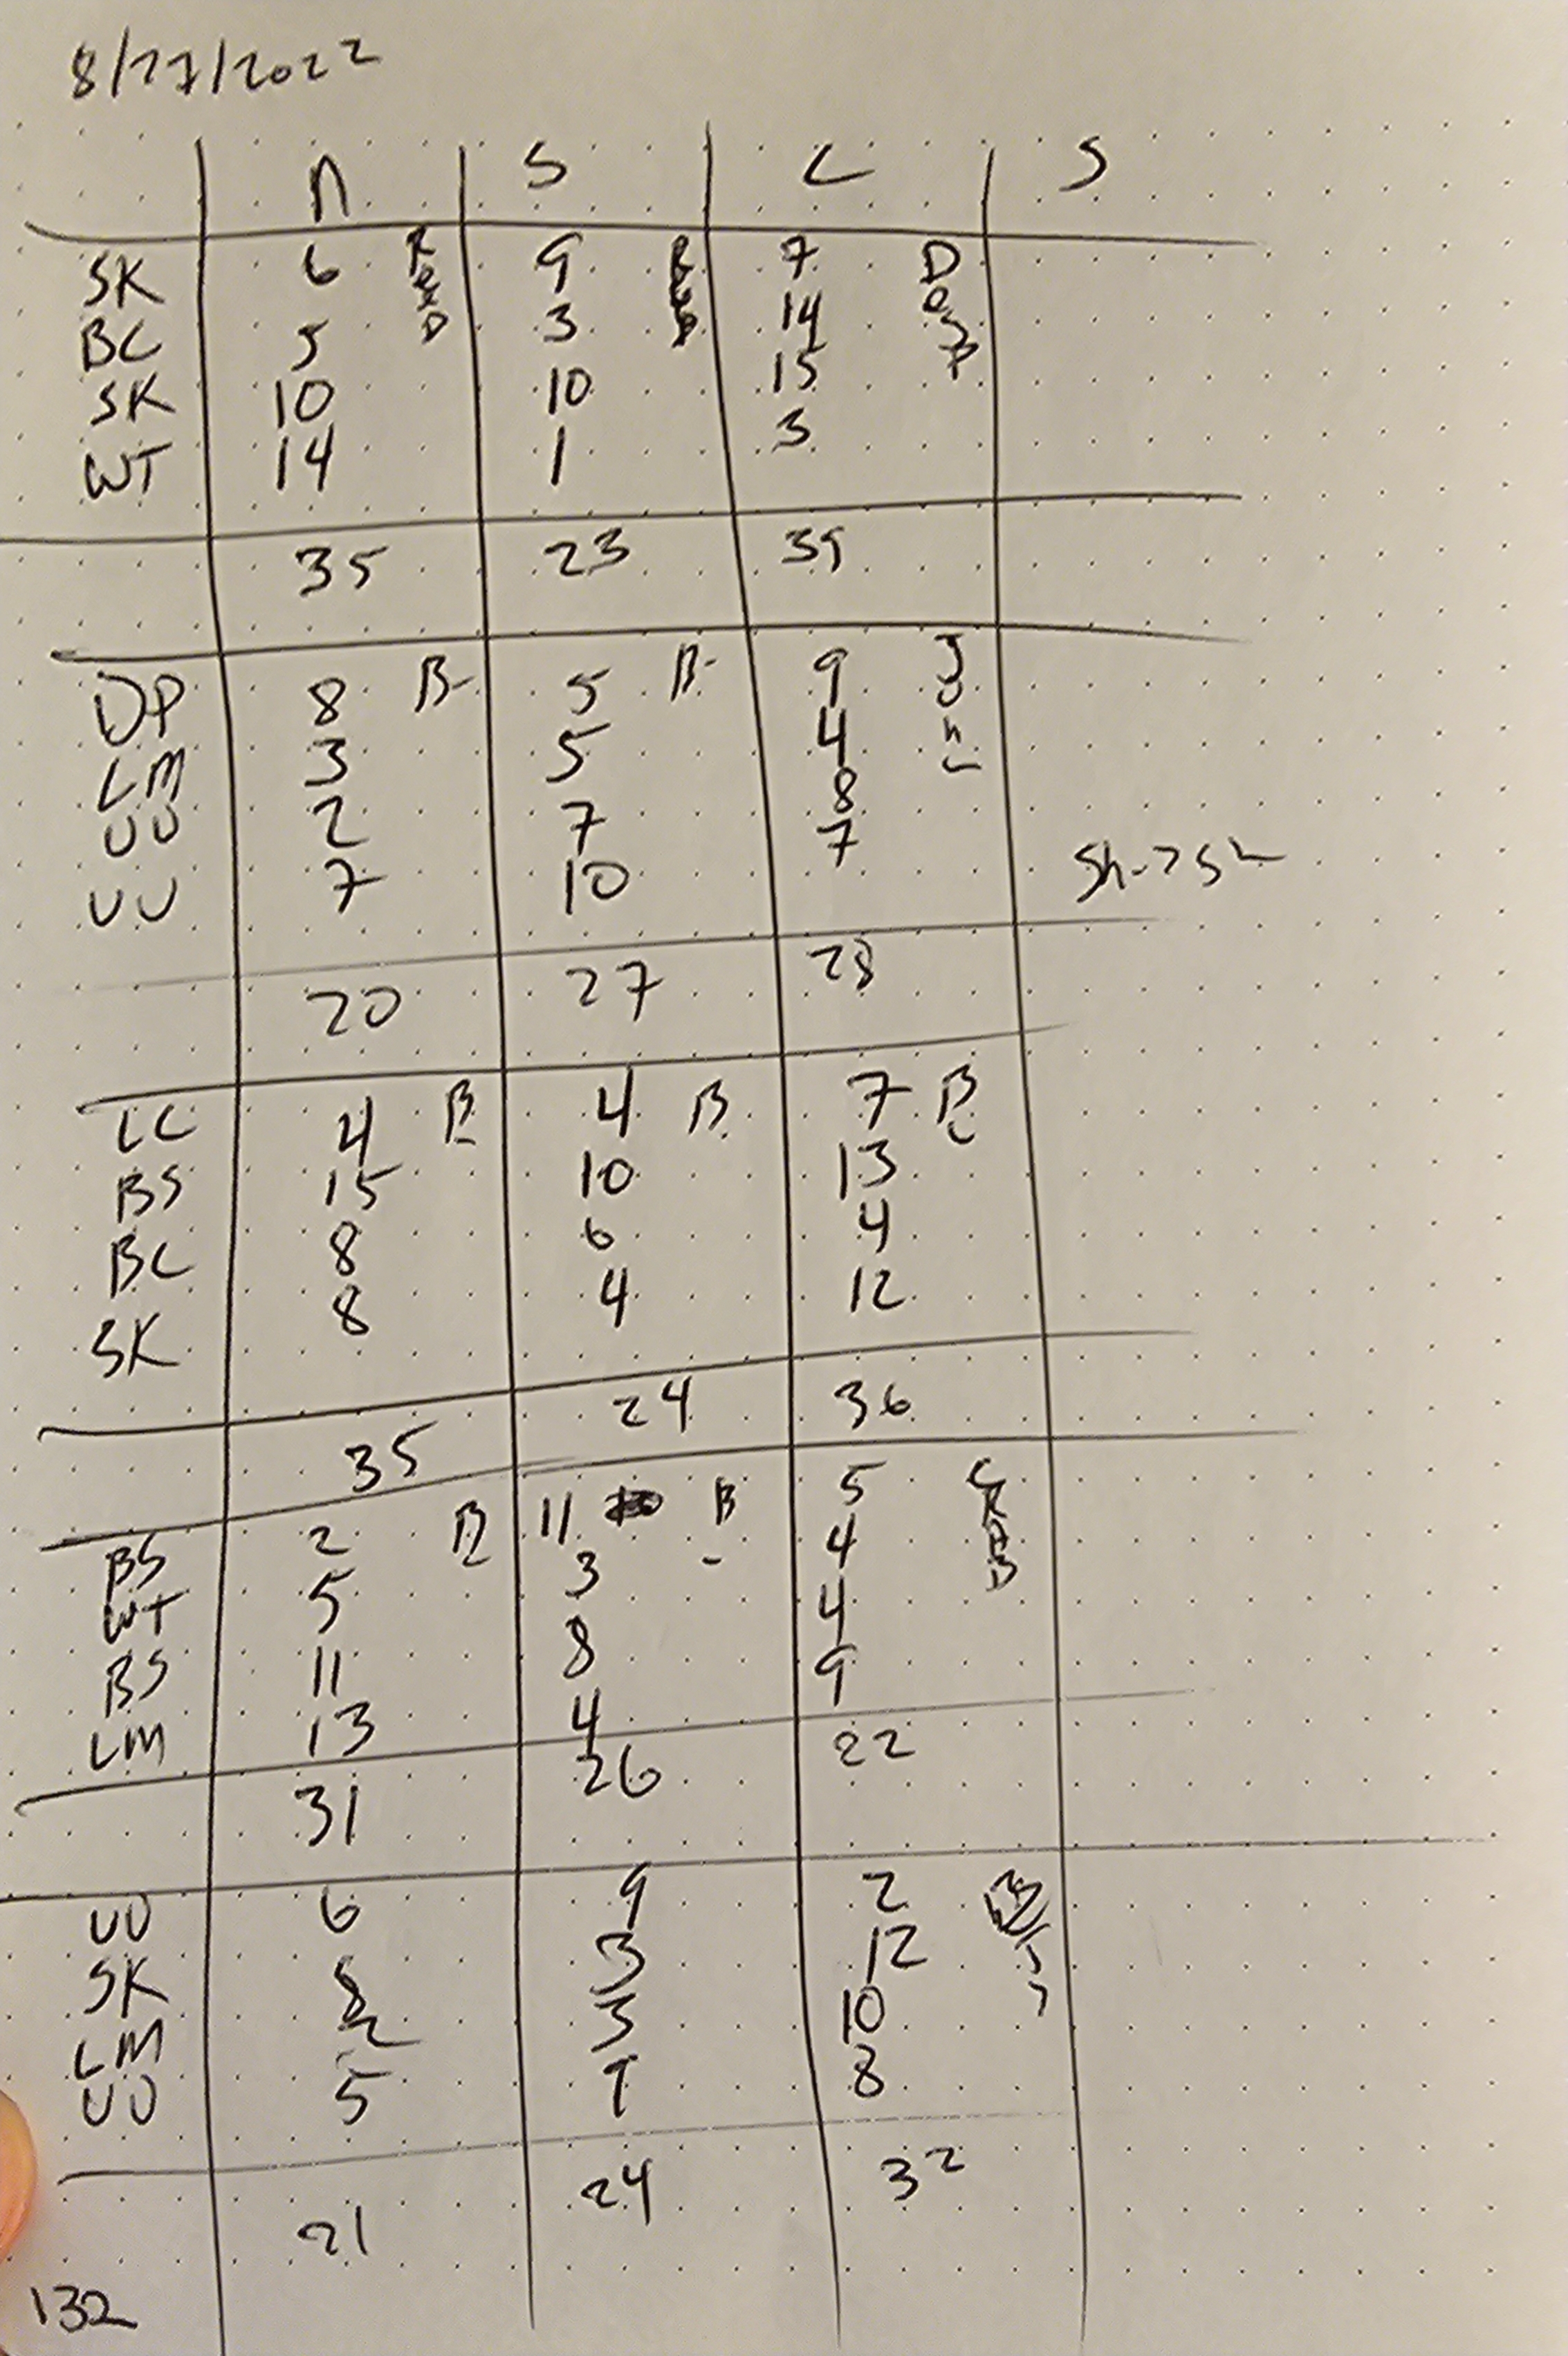 8/27/2022
n S C S
SK 6 Red 9 Red 7 Deep
BC 5 3 14
SK 10 10 15
WT 14 1 3
35 23 39
DP 8 B- 5 B- 9
LM 3 5 4
UU 2 7 8
UU 7 10 7
20 27 28
LC 4 B 4 B 7 B
BS 15 10 13
BC 8 6 4
SK 8 4 12
35 24 36
BS 2 B 11 B 5
WT 5 3 4
BS 11 8 4
LM 13 4 9
31 26 22
UU 6 9 2
SK 8 3 12
LM 2 3 10
UU 5 9 8
21 24 32
132